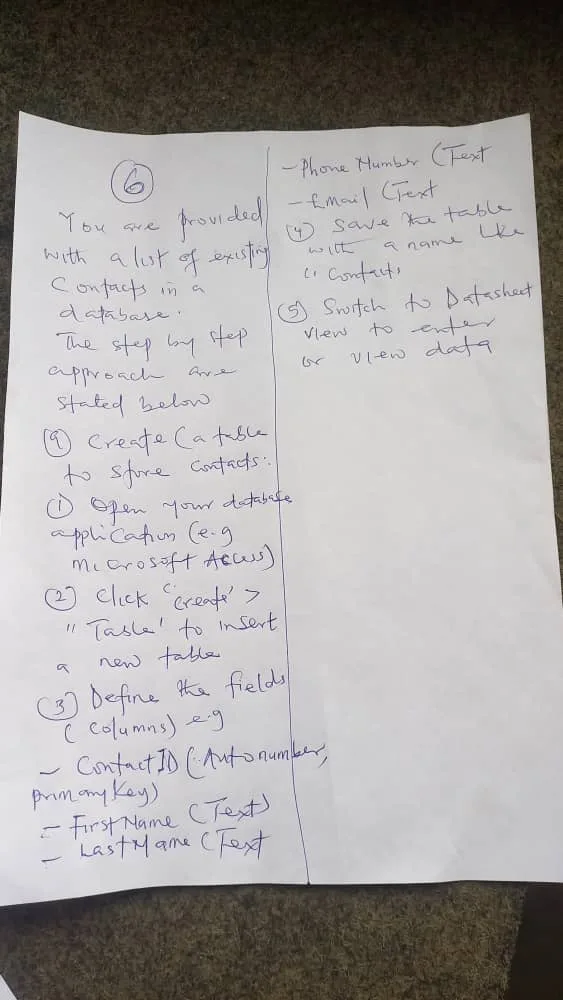 6
You are provided
with a list of existing
Contacts in a
database.
The step by step
approach are
stated below
(a) Create (a table
to store contacts:
(1) Open your database
application (e.g
Microsoft Access)
(2) Click "Create" >
"Table" to insert
a new table
(3) Define the fields
(columns) e.g
- ContactID (Autonumber,
primary key)
- FirstName (Text)
- LastName (Text
- Phone Number (Text
- Email (Text
(4) Save the table
with a name like
" Contacts
(5) Switch to Datasheet
view to enter
or view data